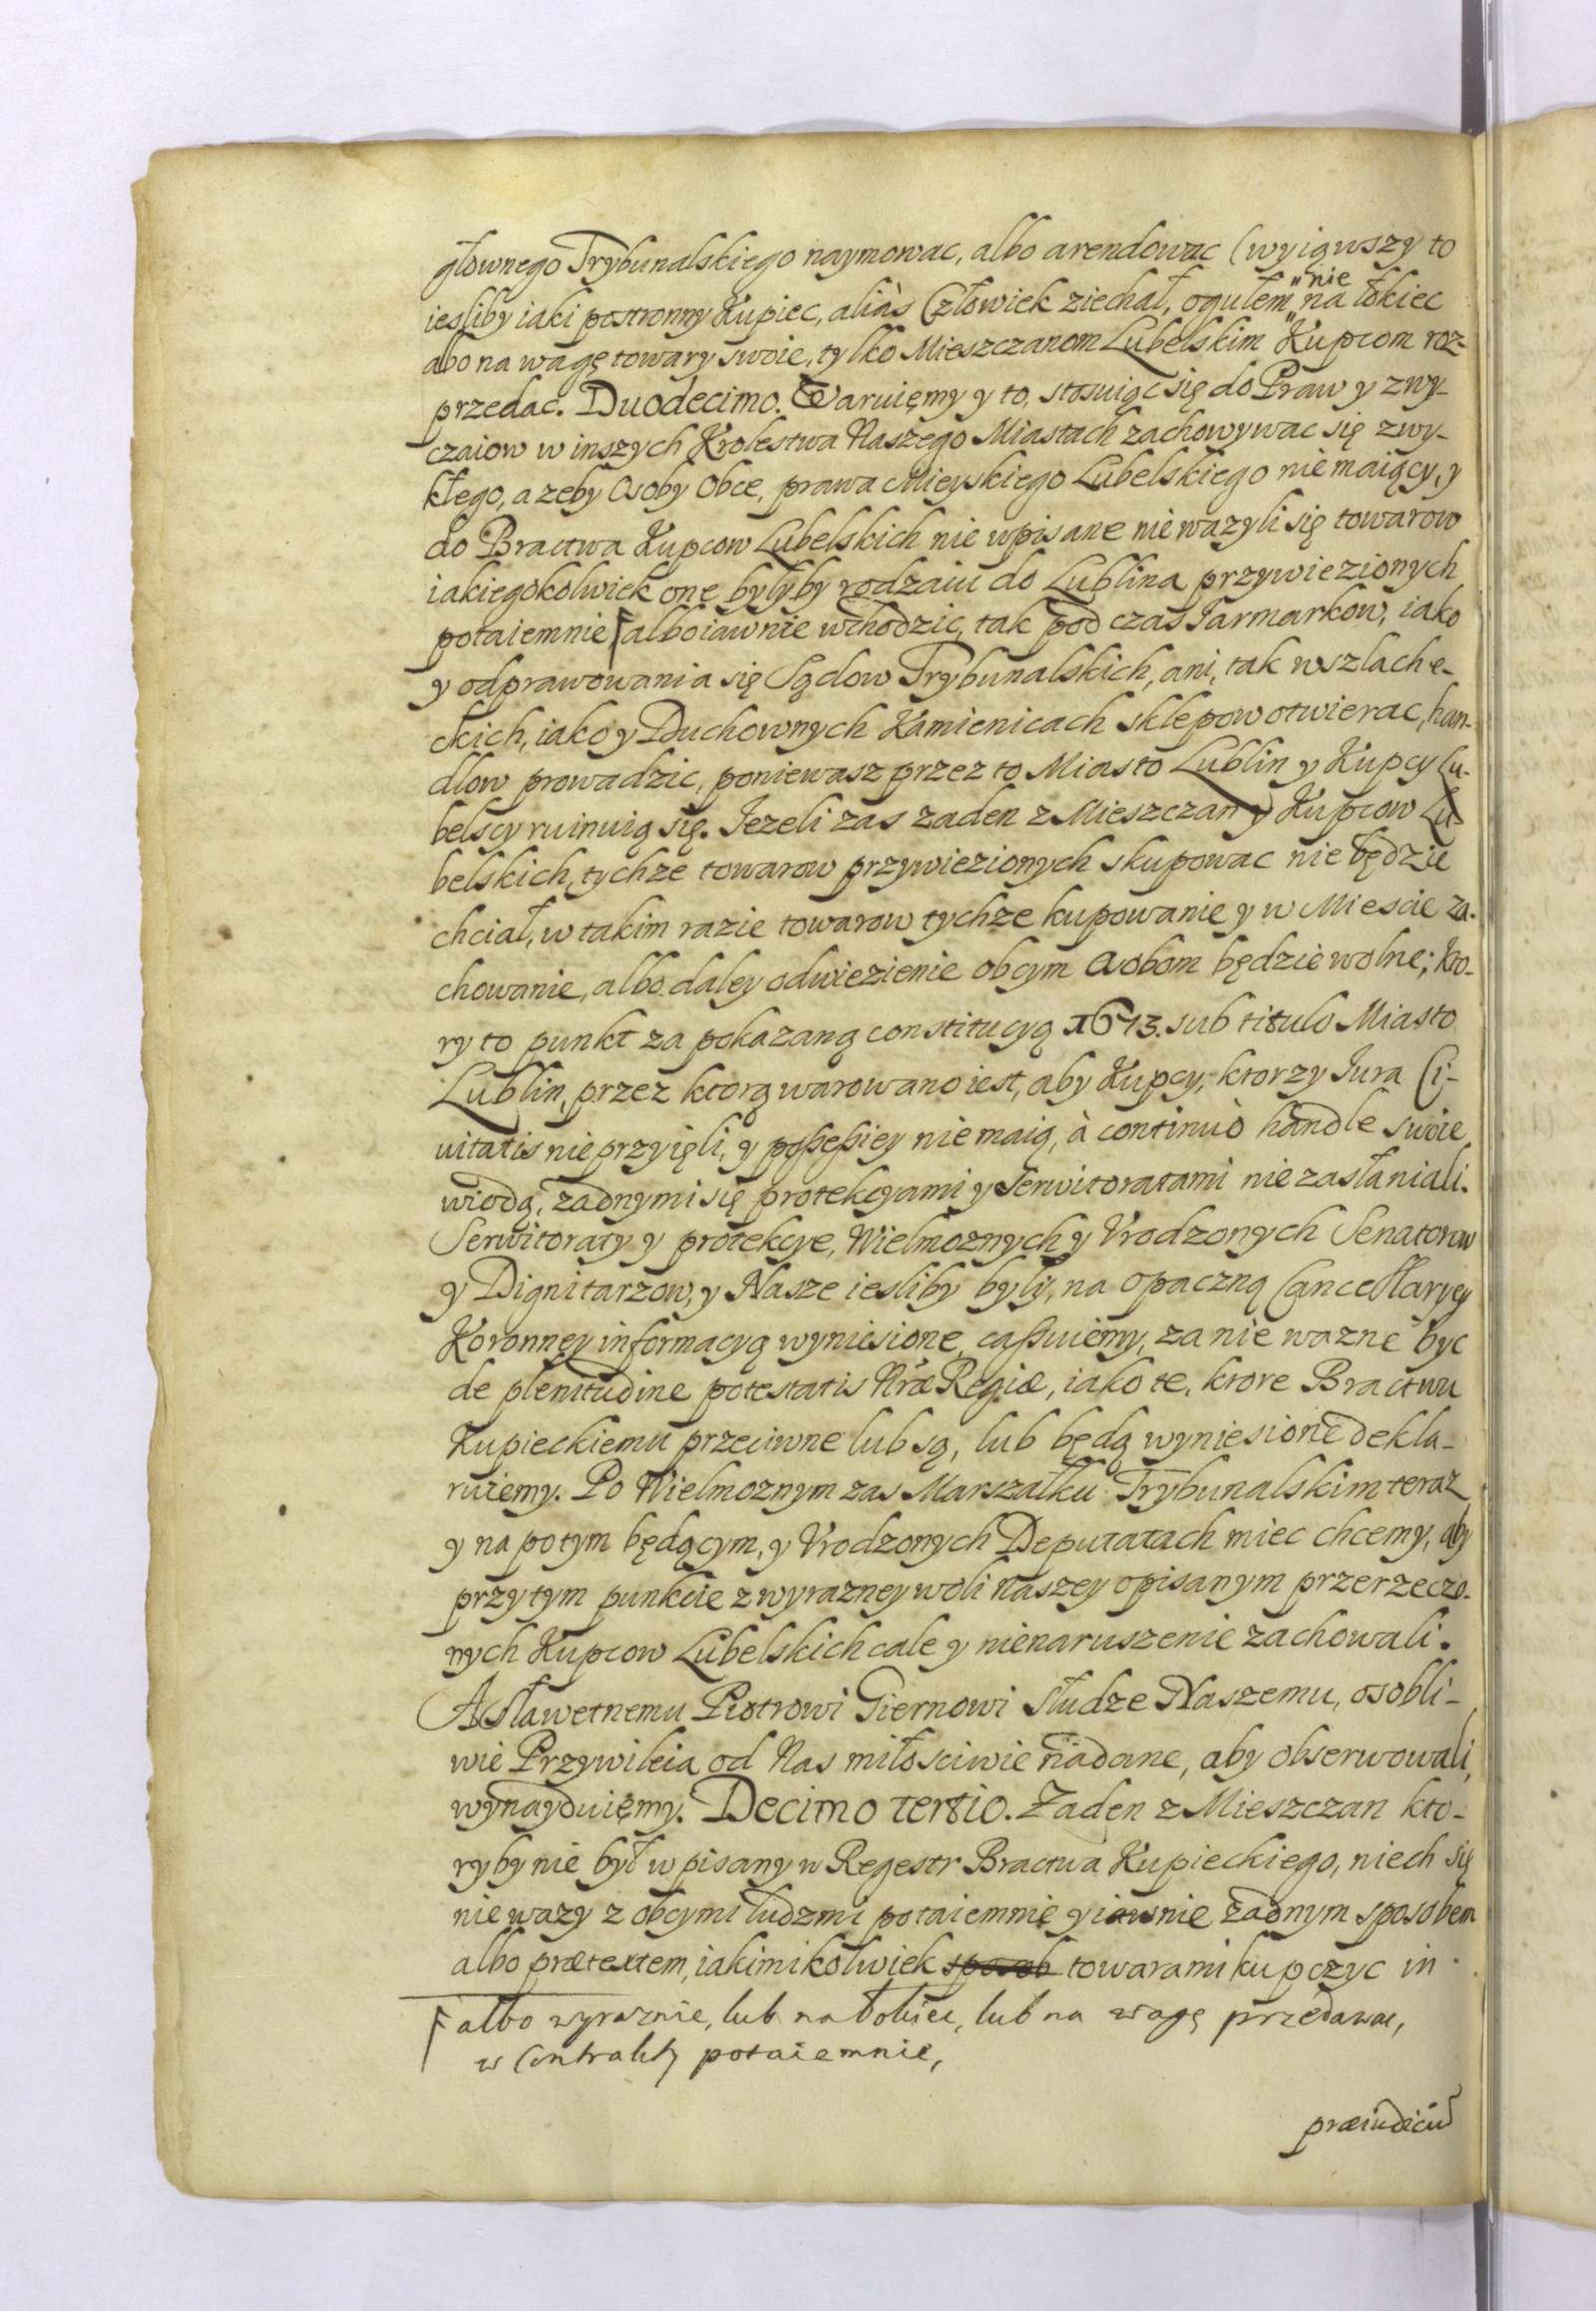 głownego Trybunalskiego naymowac, albo arendowac (wyiąwszy to
iesliby iaki postronny Kupiec, aliàs Człowiek ziechał, ogułem „nie„ na łokiec
abo na wagę towary swoie, tylko Mieszczanom Lubelskim Kupcom roz-
przedac. Duodecimo. Waruięmy y to, stosuiąc się do Praw y zwy-
czaiow w inszych Krolestwa Naszego Miastach zachowywac się zwy-
kłego, a zeby Osoby Obce, prawa Mieyskiego Lubelskiego nie maiący, y
do Bractwa Kupcow Lubelskich nie wpisane nie wazyli się towarow
iakiegokolwiek one byłyby rodzaiu do Lublina przywiezionych
potaiemnie ꟻ albo iawnie wchodzic, tak pod czas Iarmarkow, iako
y odprawowania się Sądow Trybunalskich, ani, tak w szlache-
ckich, iako y Duchownych Kamienicach sklepow otwierac, han-
dlow prowadzic, poniewasz przez to Miasto Lublin y Kupcy Lu-
belscy ruinuią się. Iezeli zas zaden z Mieszczan y Kupcow Lu-
belskich, tychze towarow przywiezionych skupowac nie będzie
chciał, w takim razie towarow tychze kupowanie y w Miescie za-
chowanie, albo daley odwiezienie obcym Osobom będzie wolne; kto-
ry to punkt za pokazaną constitucyą 1673. sub titulo Miasto
Lublin, przez ktorą warowano iest, aby Kupcy, ktorzy Iura Ci-
uitatis nie przyięli, y possessiey nie maią, à continuò handle swoie
wiodą, zadnymi się protekcyami y Serwitoratami nie zasłaniali.
Serwitoraty y protekcye, Wielmoznych y Vrodzonych Senatorow
y Dignitarzow, y Nasze iesliby były, na opaczną Cancellaryey
Koronney informacyą wyniesione, cassuiemy, za nie wazne byc
de plenitudine potestatis Nræ Regiæ, iako te, ktore Bractwu
Kupieckiemu przeciwne lub są, lub będą wyniesione dekla-
ruiemy. Po Wielmoznym zas Marszałku Trybunalskim teraz
y na potym będącym, y Vrodzonych Deputatach miec chcemy, aby
przy tym punkcie z wyrazney woli naszey opisanym przerzeczo-
nych Kupcow Lubelskich cale y nienaruszenie zachowali.
A Sławetnemu Piotrowi Giernowi Słudze Naszemu, osobli-
wie Przywileia od Nas miłosciwie nadane, aby obserwowali,
wynayduięmy. Decimo tertio. Zaden z Mieszczan kto-
ry by nie był wpisany w Regestr Bractwa Kupieckiego, niech się
nie wazy z obcymi ludzmi potaiemnie y iawnie zadnym sposobem
albo prætextem, iakimikolwiek sposob towarami kupczyc in
ꟻ albo wyraznie, lub na Łokiec, lub na wagę przedawac,
w Contrakty potaiemnie,
præiudiciu